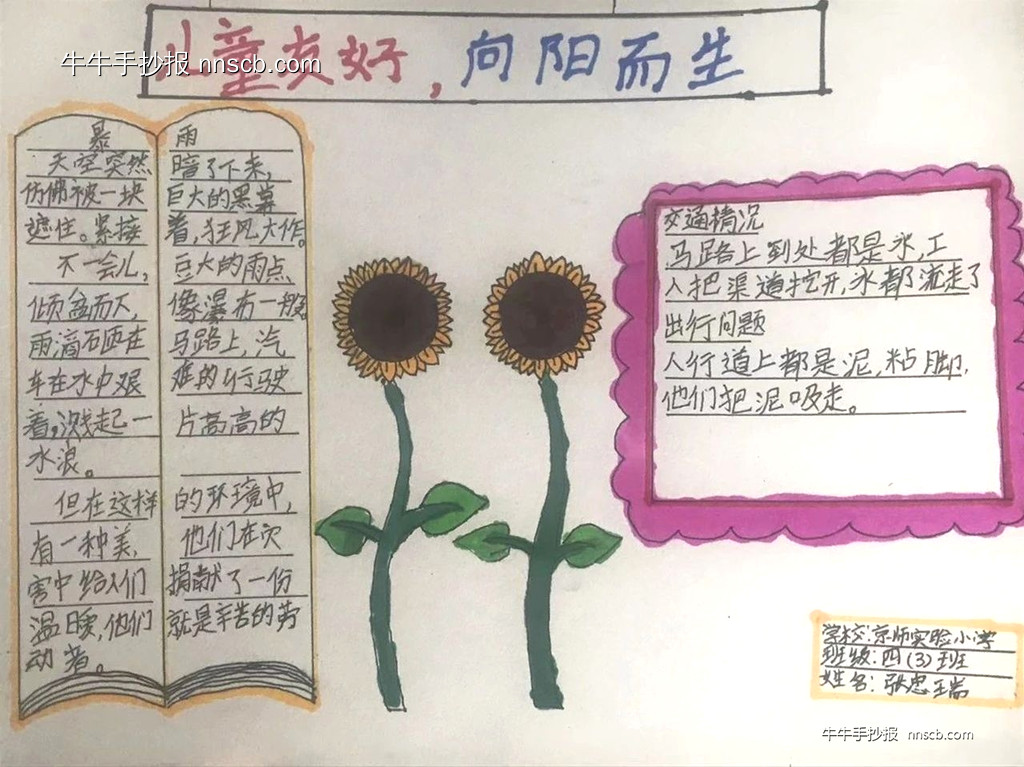 儿童友好，向阳而生
牛牛手抄报 nnscb.com
暴雨
天空突然暗了下来，
仿佛被一块巨大的黑幕
遮住。紧接着，狂风大作。
不一会儿，豆大的雨点
倾盆而下，像瀑布一般。
雨滴石西在马路上，汽
车在水中艰难的行驶
着，溅起一片高高的
水浪。
但在这样的环境中，
有一种美，他们在灾
害中给人们捐献了一份
温暖，他们就是辛苦的劳
动者。
交通情况
马路上到处都是水，工
人把渠道挖开，水都流走了
出行问题
人行道上都是泥，粘脚，
他们把泥吸走。
学校：京师实验小学
班级：四（3）班
姓名：张忠
牛牛手抄报 nnscb.com